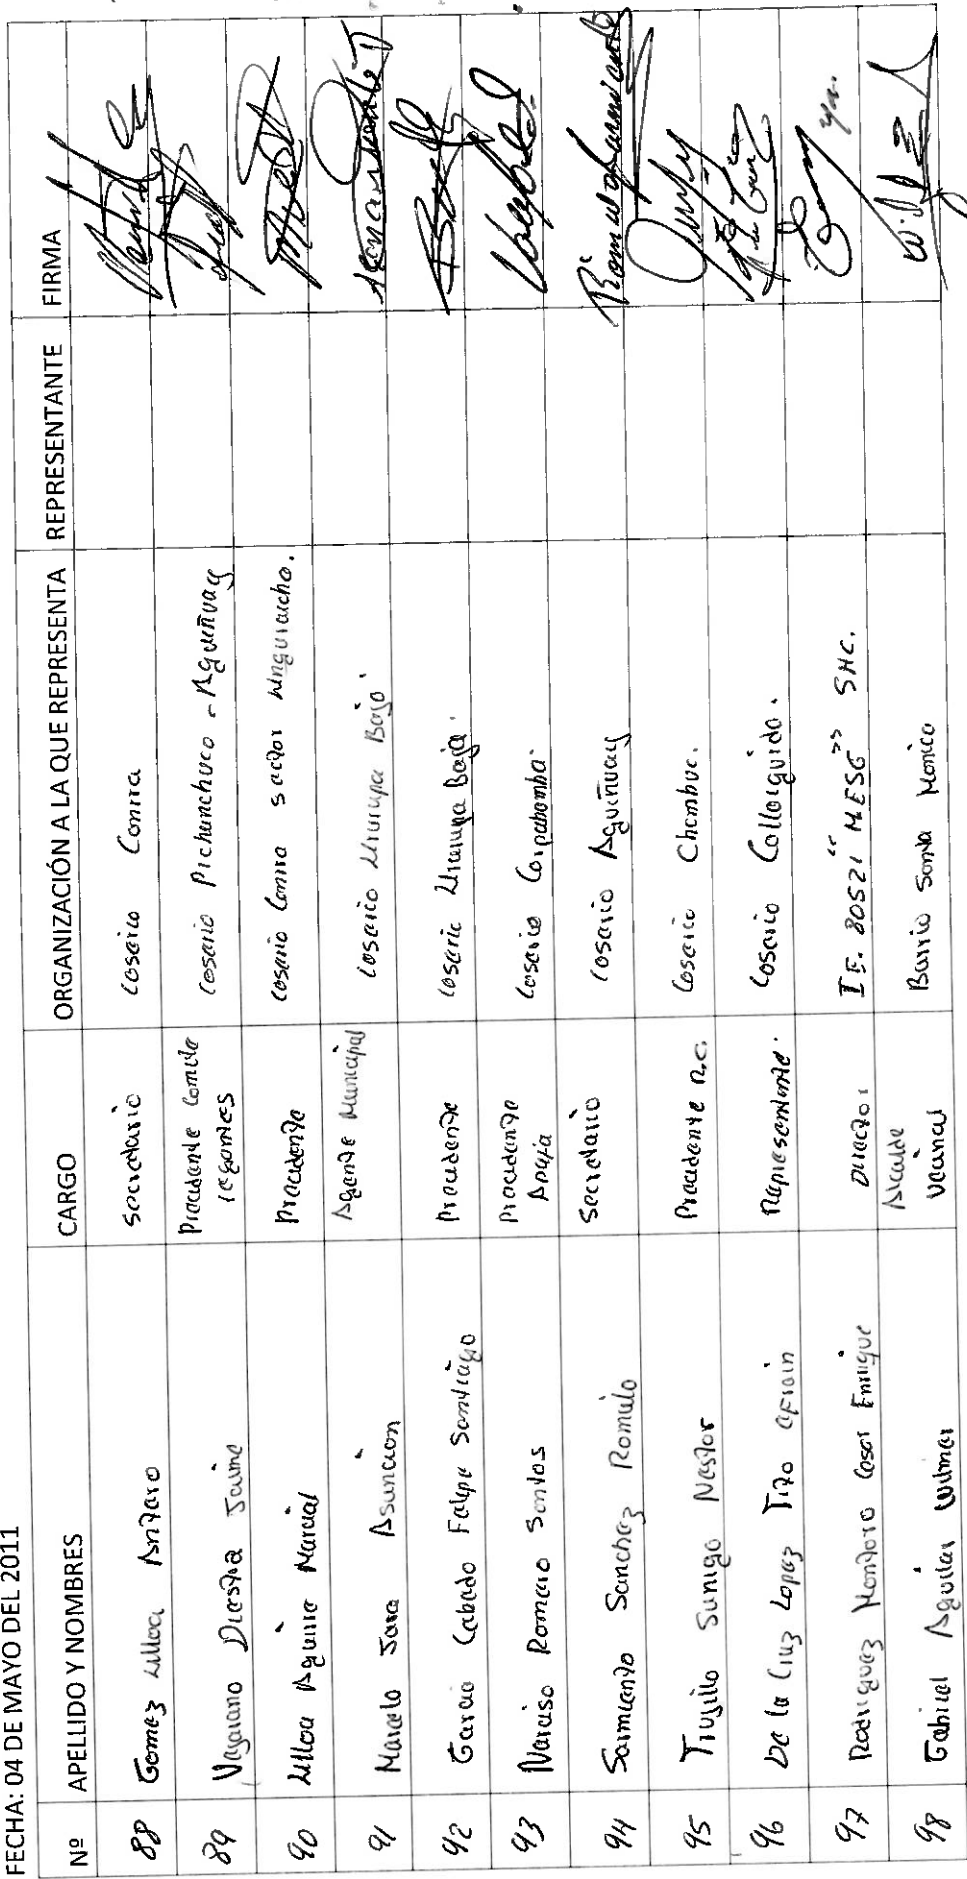 FECHA: 04 DE MAYO DEL 2011
Nº APELLIDO Y NOMBRES CARGO ORGANIZACIÓN A LA QUE REPRESENTA REPRESENTANTE FIRMA
88 Gomez Ulloa Antero Secretario Caserio Conra
89 Diestra Jaime Presidente Comite
regantes Caserio Pichunchuco - Aguiñuay
90 Ulloa Aguirre Marcial Presidente Caserio Conra sector
91 Marcelo Jara Asuncion Agente Municipal Caserio Urumpa Bajo
92 Garcia Cabado Felipe Santiago Presidente Caserio Urumpa Baja.
93 Narciso Romero Santos Presidente
Apafa Caserio Corpabamba
94 Sarmiento Sanchez Romulo Secretario Caserio Aguiñuay
95 Trujillo Sunigo Nestor Presidente R.C. Caserio Chambuc.
96 De la Cruz Lopez Tito Efrain Representante. Caserio
97 Rodriguez Montoro Cesar Enrique Director I.E. 80521 "MESG" SHC.
98 Gabriel Aguilar Wilmer Alcalde
Vecinal Barrio Santa Monica